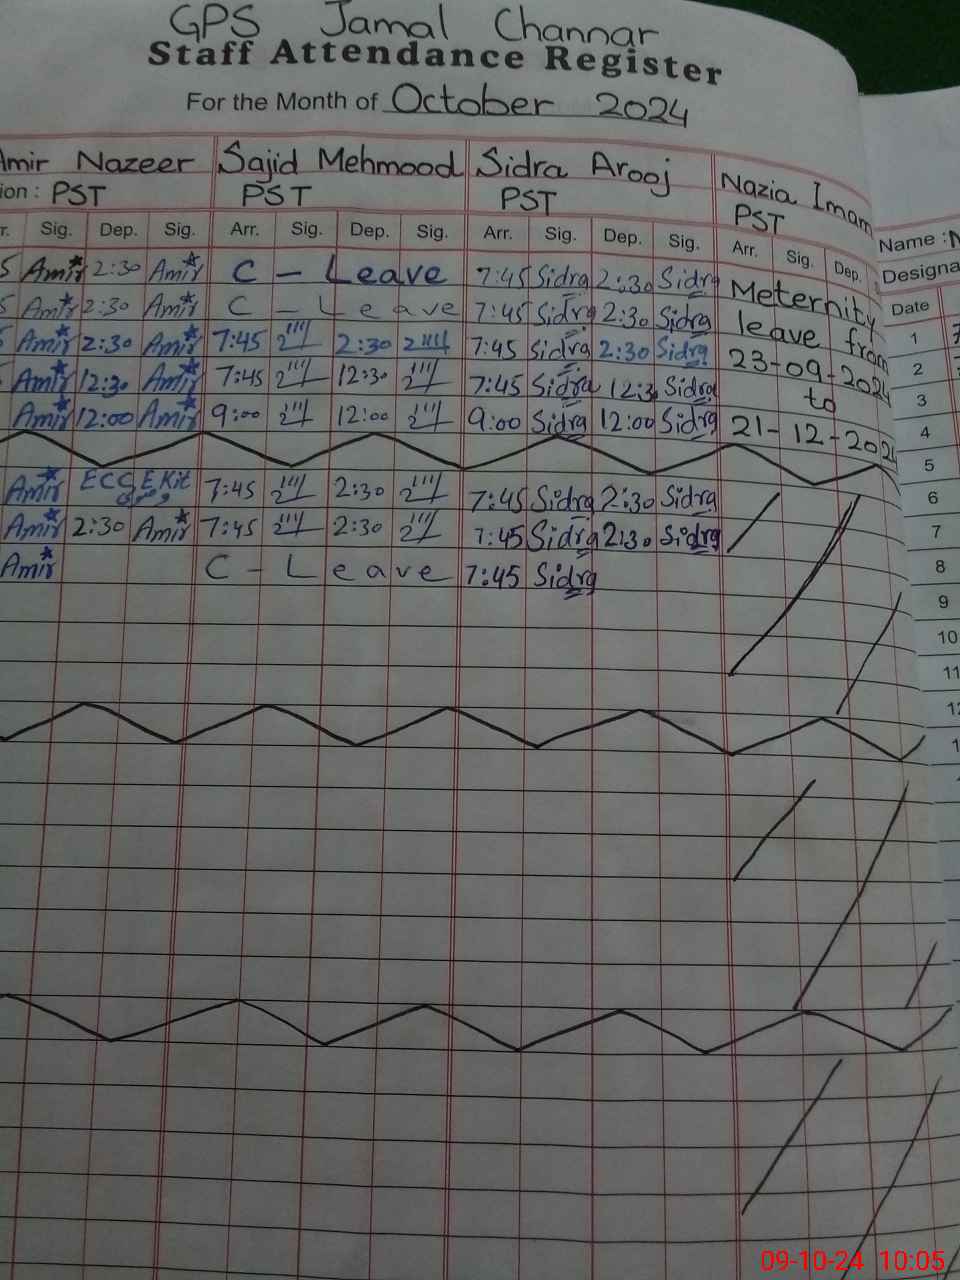 GPS Jamal Channar
Staff Attendance Register
For the Month of October 2024
Amir Nazeer Sajid Mehmood Sidra Arooj Nazia Imam
ion : PST PST PST PST
r. Sig. Dep. Sig. Arr. Sig. Dep. Sig. Arr. Sig. Dep. Sig. Arr. Sig. Dep.
Name :
Designa
Date
5 Amir 2:30 Amir C - Leave 7:45 Sidra 2:30 Sidra Meternity
5 Amir 2:30 Amir C - Leave 7:45 Sidra 2:30 Sidra leave from
Amir 2:30 Amir 7:45 2:30 7:45 Sidra 2:30 Sidra 23-09-2024
Amir 12:30 Amir 7:45 12:30 7:45 Sidra 12:3 Sidra to
Amir 12:00 Amir 9:00 12:00 9:00 Sidra 12:00 Sidra 21-12-2024
Amir Kit 7:45 2:30 7:45 Sidra 2:30 Sidra
Amir 2:30 Amir 7:45 2:30 7:45 Sidra 2:30 Sidra
Amir C - Leave 7:45 Sidra
1
2
3
4
5
6
7
8
9
10
11
12
1
09-10-24 10:05